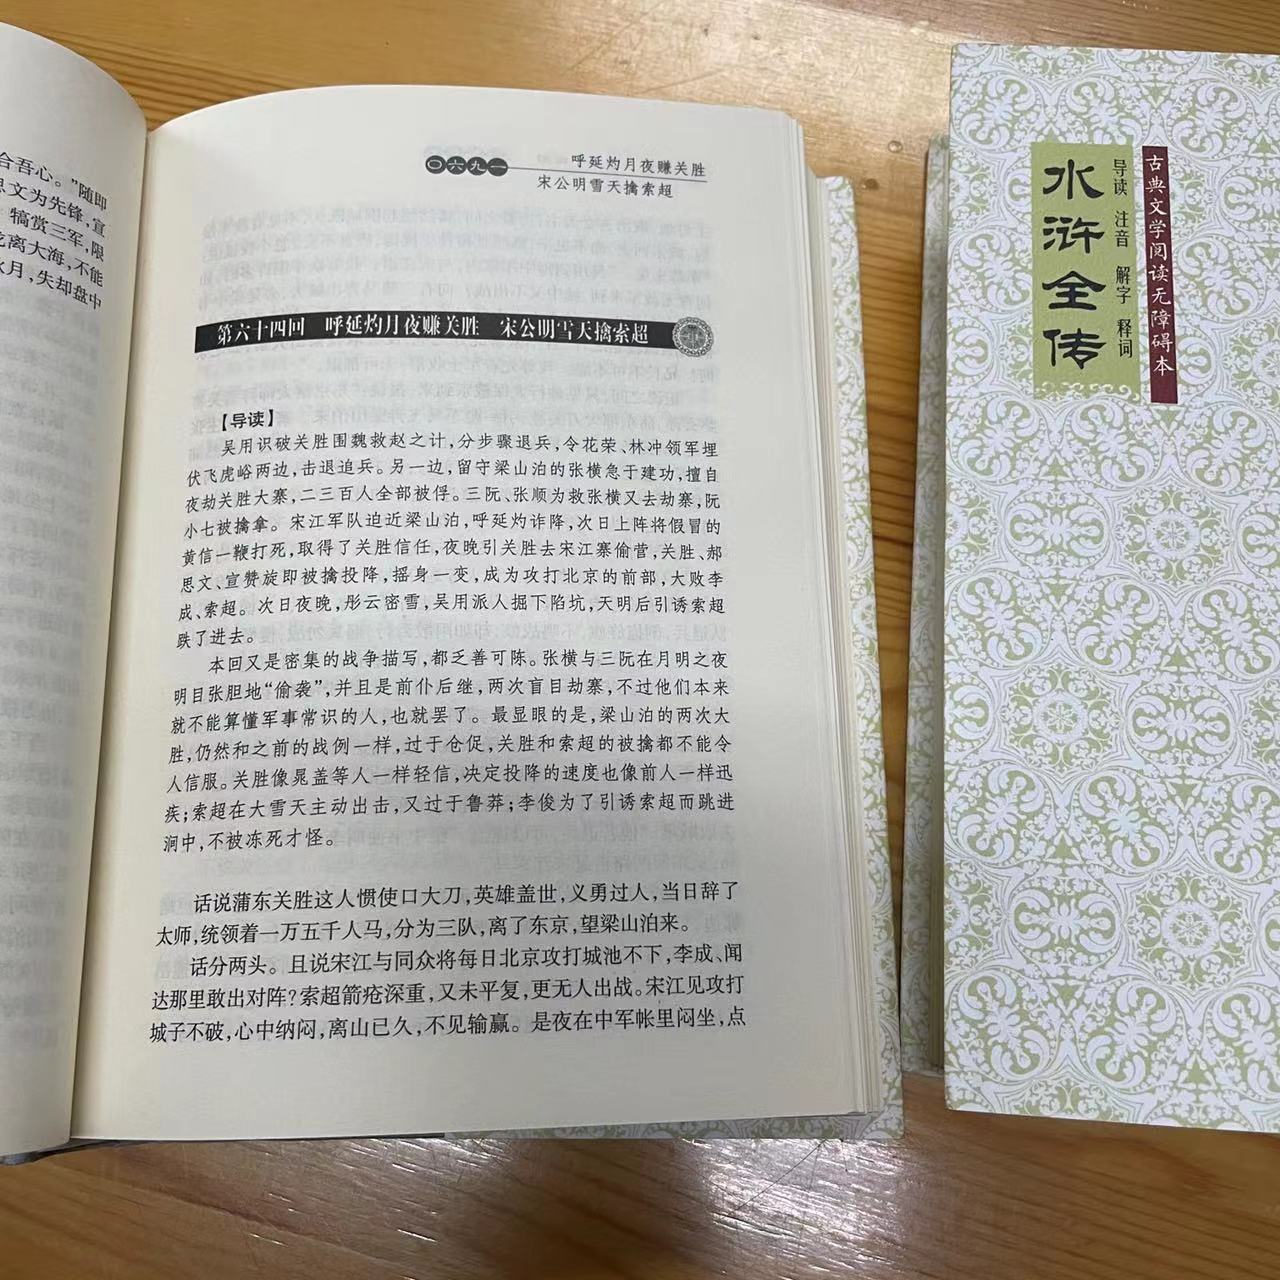 合吾心。”随即
思文为先锋，宣
犒赏三军，限
龙离大海，不能
水月，失却盘中
〇六九一
呼延灼月夜赚关胜
宋公明雪天擒索超
第六十四回 呼延灼月夜赚关胜 宋公明雪天擒索超
【导读】
吴用识破关胜围魏救赵之计，分步骤退兵，令花荣、林冲领军埋
伏飞虎峪两边，击退追兵。另一边，留守梁山泊的张横急于建功，擅自
夜劫关胜大寨，二三百人全部被俘。三阮、张顺为救张横又去劫寨，阮
小七被擒拿。宋江军队迫近梁山泊，呼延灼诈降，次日上阵将假冒的
黄信一鞭打死，取得了关胜信任，夜晚引关胜去宋江寨偷营，关胜、郝
思文、宣赞旋即被擒投降，摇身一变，成为攻打北京的前部，大败李
成、索超。次日夜晚，彤云密雪，吴用派人掘下陷坑，天明后引诱索超
跌了进去。
本回又是密集的战争描写，都乏善可陈。张横与三阮在月明之夜
明目张胆地“偷袭”，并且是前仆后继，两次盲目劫寨，不过他们本来
就不能算懂军事常识的人，也就罢了。最显眼的是，梁山泊的两次大
胜，仍然和之前的战例一样，过于仓促，关胜和索超的被擒都不能令
人信服。关胜像晁盖等人一样轻信，决定投降的速度也像前人一样迅
疾；索超在大雪天主动出击，又过于鲁莽；李俊为了引诱索超而跳进
涧中，不被冻死才怪。
话说蒲东关胜这人惯使口大刀，英雄盖世，义勇过人，当日辞了
太师，统领着一万五千人马，分为三队，离了东京，望梁山泊来。
话分两头。且说宋江与同众将每日北京攻打城池不下，李成、闻
达那里敢出对阵？索超箭疮深重，又未平复，更无人出战。宋江见攻打
城子不破，心中纳闷，离山已久，不见输赢。是夜在中军帐里闷坐，点
古典文学阅读无障碍本
导读 注音 解字 释词
水浒全传